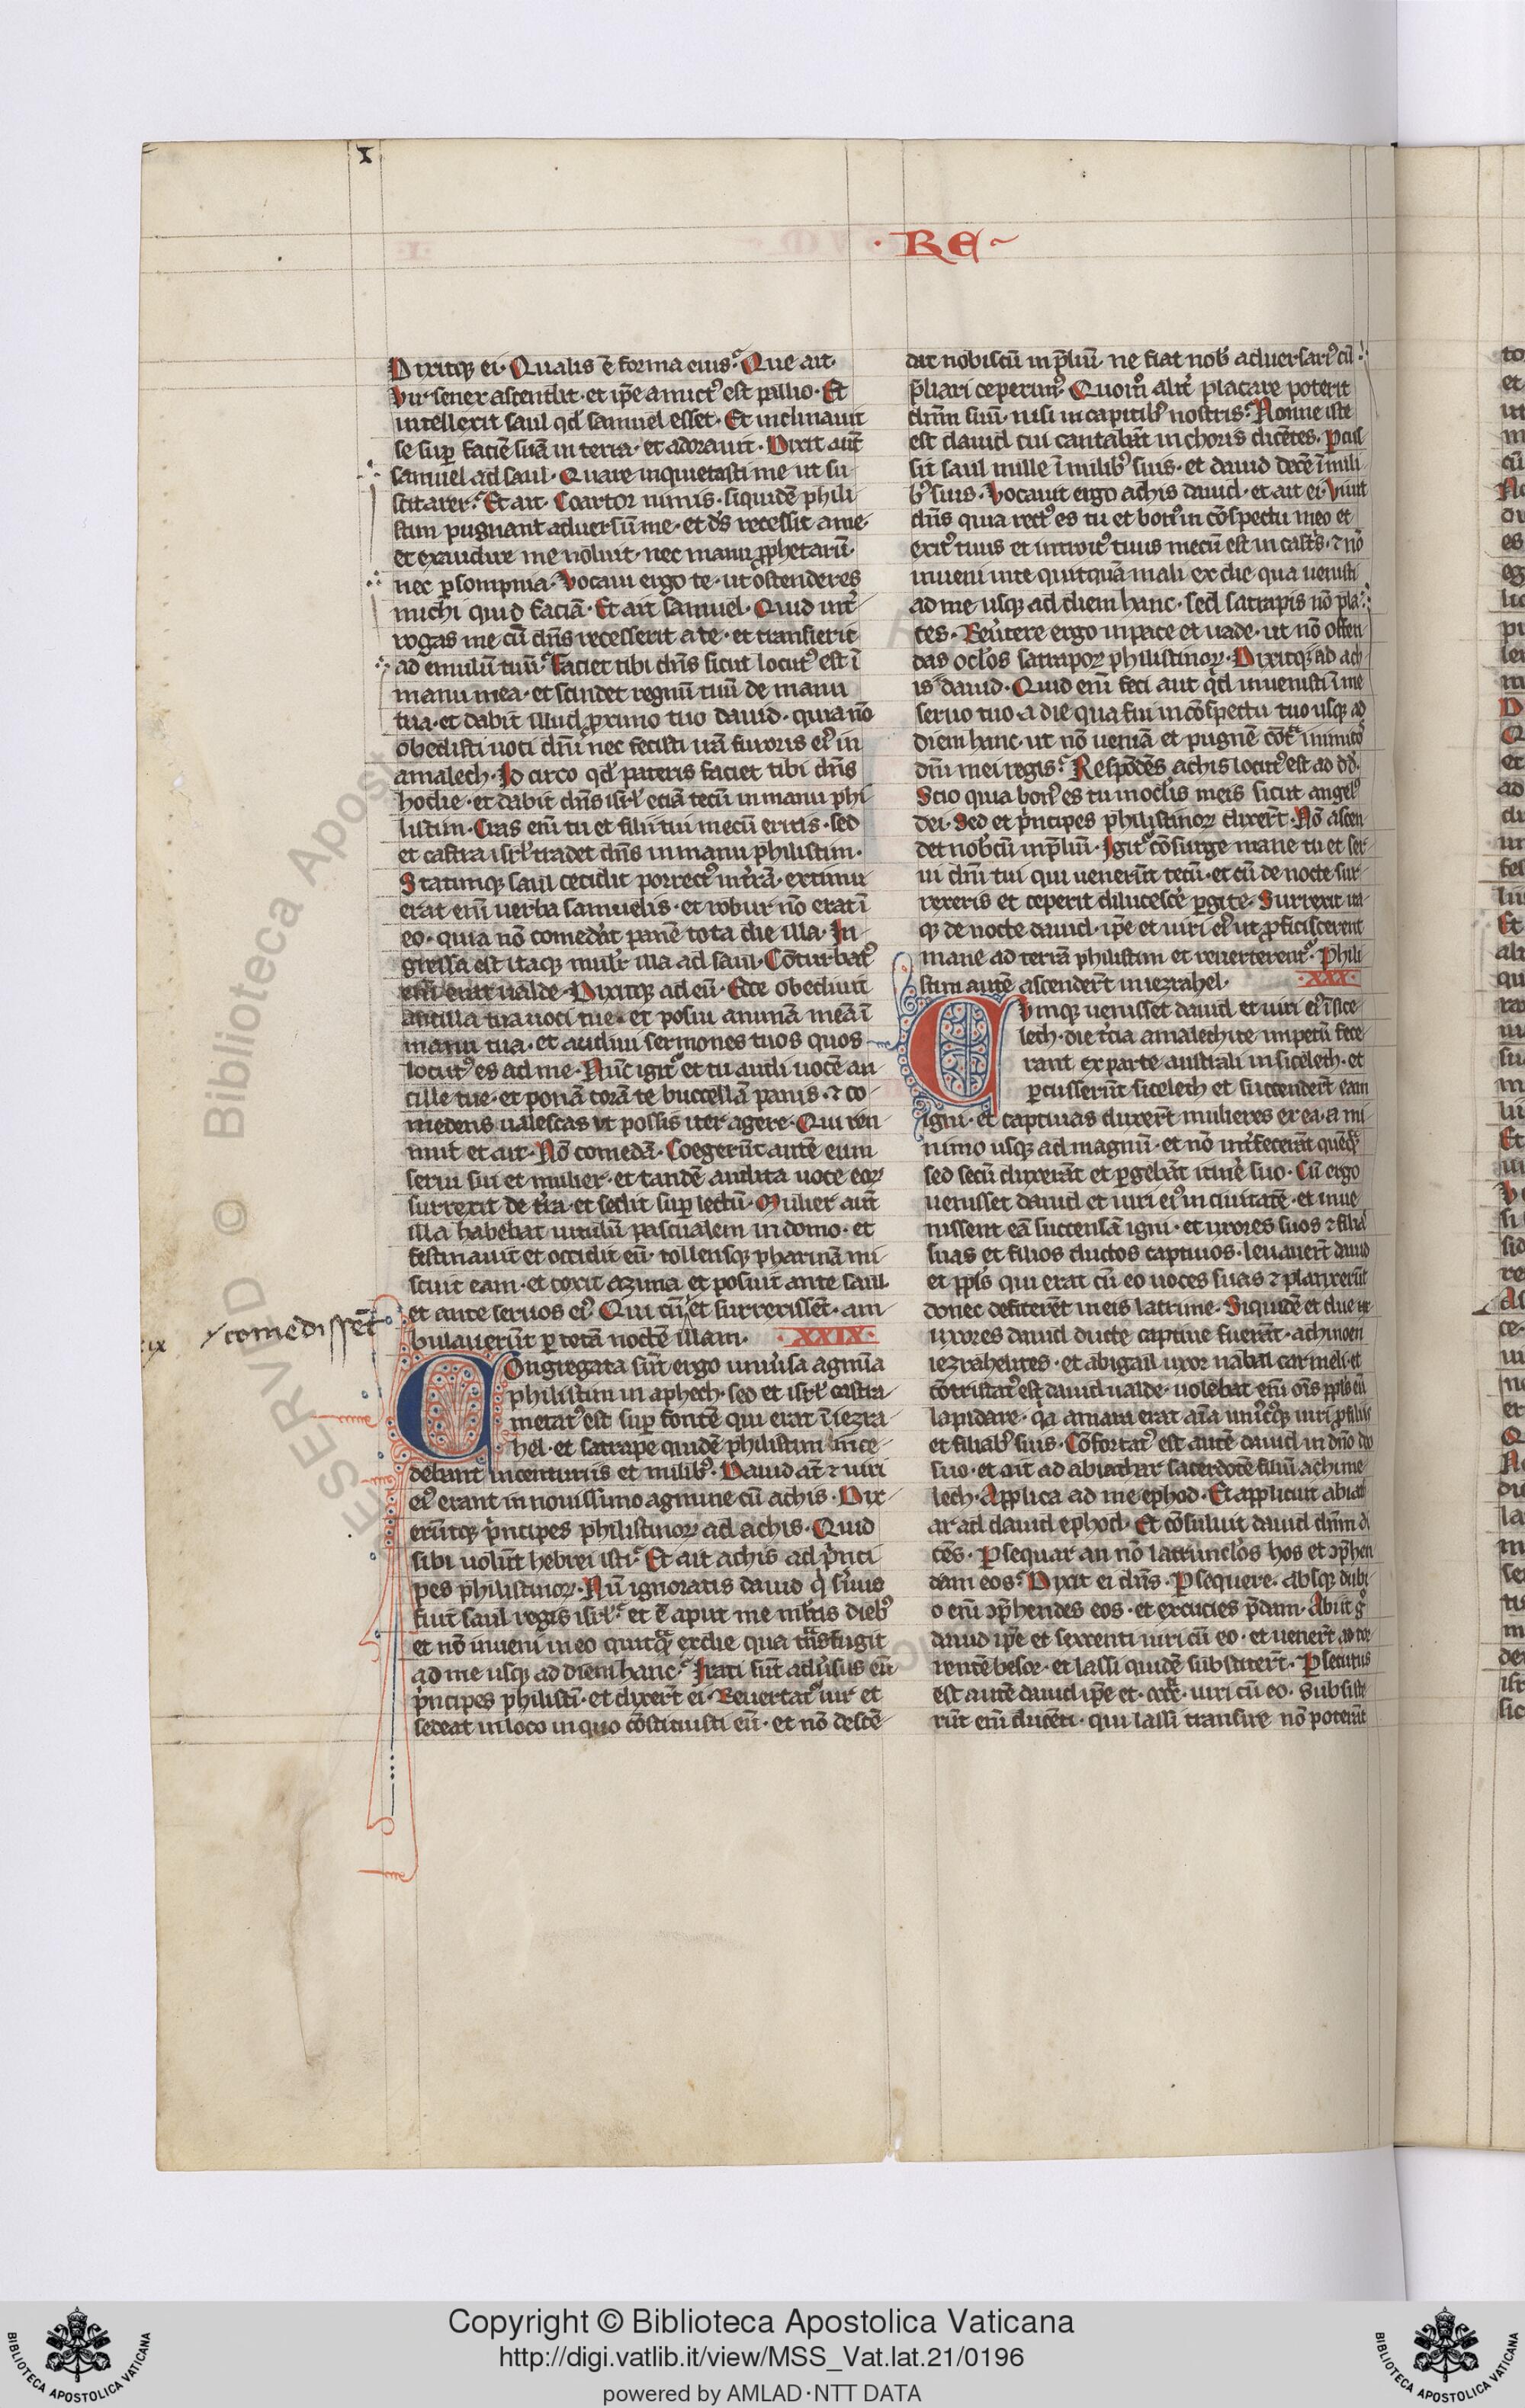 x
· RE ~
Dixitq; ei· Qualis ē forma eius? Que ait·
Vir senex ascendit· et ip̄e amictꝰ est pallio· Et
intellexit saul qd̛ samuel esset· Et inclinauit
se sup̱ faciē suā in terra· et adorauit· Dixit aut̄
samuel ad saul· Quare inquietasti me ut su
scitarer? Et ait· Coartor nimis· siquidē phili
stiim pugnant aduersū me· et ds̄ recessit a me·
et exaudire me noluit· nec manu ꝓphetarū·
nec ꝑ sompnia· Vocaui ergo te· ut ostenderes
michi quid faciā· Et ait samuel· Quid int̄
rogas me cū dn̄s recesserit a te· et transierit
ad emulū tuū? Faciet tibi dn̄s sicut locutꝰ est ī
manu mea· et scindet regnū tuū de manu
tua· et dabit illud ꝓximo tuo dauid· quia nō
obedisti uoci dn̄i nec fecisti irā furoris eiꝰ in
amalech· Id circo qd̛ pateris faciet tibi dn̄s
hodie· et dabit dn̄s isrl̄ etiā tecū in manu phi
listiim· Cras eni̅ tu et filii tui mecū eritis· sed
et castra isrl̄ tradet dn̄s in manu philistiim·
Statimq; saul cecidit porrectꝰ in t̄rā· extimu
erat eni̅ uerba samuelis· et robur nō erat ī
eo· quia nō comederat panē tota die illa· In
gressa est itaq; mulier illa ad saul· Cōturbatꝰ
eni̅ erat ualde· Dixitq; ad eū· Ecce obediuit
ancilla tua uoci tue· et posui animā meā ī
manu tua· et audiui sermones tuos quos
locutꝰ es ad me· Nūc igit᷑ et tu audi uocē an
cille tue· et ponā corā te buccellā panis· ⁊ co
medens ualescas ut possis iter agere· Qui ren
nuit et ait· Nō comedā· Coegerūt autē eum
serui sui et mulier· et tandē audita uoce eoꝝ
surrexit de t̄ra· et sedit sup̱ lectū· Mulier aut̄
illa habebat uitulū pascualem in domo· et
festinauit et occidit eū· tollensq; pharinā mi
scuit eam· et coxit azima et posuit ante saul
et ante seruos eiꝰ· Qui cū et surrexissēt· am
comedissēt
ix
bulauerūt ꝑ totā noctē illam· XXIX·
Congregata sūt ergo uniu̅sa agmīa
philistiim in aphech· sed et isrl̄ castra
metatꝰ est sup̱ fontē qui erat ī iezra
hel· et satrape quidē philistiim ince
debant in centuriis et milibꝰ· Dauid at̄ ⁊ uiri
eiꝰ erant in nouissimo agmine cū achis· Dix
erūtq; p̄ncipes philistinoꝝ ad achis· Quid
sibi uolūt hebrei isti? Et ait achis ad p̄nci
pes philistinoꝝ· Nū ignoratis dauid q̄ s̄uus
fuit saul regis isrl̄? et ē aput me multis diebꝰ
et nō inueni in eo quicq̄ ex die qua t̄nsfugit
ad me usq; ad diem hanc? Irati sūt adu̅sus eū
p̄ncipes philistī· et dixer̄t ei· Reuertat᷑ uir et
sedeat in loco in quo cōstituisti eū· et nō descē
dat nobiscū in p̄liū· ne fiat nob̄ aduersariꝰ cū
p̄liari ceperimꝰ· Quom̊ alit̄ placare poterit
dn̄m suū· nisi in capitibꝰ nostris? Nonne iste
est dauid cui cantabāt in choris dicētes· ꝑcus
sit saul mille ī milibꝰ suis· et dauid decē ī mili
bꝰ suis· Vocauit ergo achis dauid· et ait ei· Viuit
dn̄s quia rectꝰ es tu et bonꝰ in cōspectu meo et
exitꝰ tuus et introitꝰ tuus mecū est in castris· ⁊ nō
inueni in te quicquā mali ex die qua uenisti
ad me usq; ad diem hanc· sed satrapis nō pla
ces· Reu̅tere ergo in pace et uade· ut nō offen
das oclōs satrapoꝝ philistinoꝝ· Dixitq; ad ach
is dauid· Quid eni̅ feci aut qd̛ inuenisti ī me
seruo tuo a die qua fui in cōspectu tuo usq; ad
diem hanc· ut nō ueniā et pugnē cōtra inimicos
dn̄i mei regis? Respōdēs achis locutꝰ est ad dd̄·
Scio quia bonꝰ es tu in oclīs meis sicut angelꝰ
dei· Sed et p̄ncipes philistinoꝝ dixer̄t· Nō ascen
det nob̄cū in p̄liū· Igit᷑ cōsurge mane tu et ser
ui dn̄i tui qui uenerūt tecū· et cū de nocte sur
rexeris et ceperit dilucescere ꝑgite· Surrexit ita
q; de nocte dauid· ip̄e et uiri eiꝰ ut ꝓficiscerent
mane ad terrā philistiim et reuerterent᷑· Phili
stiim autē ascender̄t in iezrahel· XXX·
Cvmq; uenisset dauid et uiri eiꝰ ī sice
lech· die t̄cia amalechite impetū fece
rant ex parte australi in sicelech· et
ꝑcusserūt sicelech et succender̄t eam
igni· et captiuas duxer̄t mulieres ex ea· a mi
nimo usq; ad magnū· et nō int̄fecerāt quēq̄
sed secū duxerāt et ꝑgebāt itinē suo· Cū ergo
uenisset dauid et uiri eiꝰ in ciuitatē· et inue
nissent eā succensā igni· et uxores suos ⁊ filias
suas et filios ductos captiuos· leuauer̄t dauid
et ppl̄s qui erat cū eo uoces suas ⁊ planxerūt
donec deficerēt in eis lacrime· Siquidē et due ux
uxores dauid ducte captiue fuerāt· achinoen
iezrahelites· et abigail uxor nabal carmeli· et
cōtristatꝰ est dauid ualde· uolebat eni̅ om̄s ppl̄s eū
lapidare· q̄a amara erat aīa uniꝰcuiꝰq; uiri ꝑ filiis
et filiabꝰ suis· Cōfortatꝰ est autē dauid in dn̄o do
suo· et ait ad abiathar sacerdotē filiū achime
lech· Applica ad me ephod· Et applicuit abiat
ar ad dauid ephod· Et cōsuluit dauid dn̄m di
cēs· Ꝑsequar an nō latrunclōs hos et ɔp̄hen
dam eos? Dixit ei dn̄s· Ꝑsequere· absq; dubi
o eni̅ ɔp̄hendes eos· et excucies p̄dam· Abiit gͦ
dauid ip̄e et sexcenti uiri cū eo· et uener̄t ad tor
rentē besor· et lassi quidē substiter̄t· Ꝑsecutus
est autē dauid ip̄e et· cccc· uiri cū eo· Subsiste
rūt eni̅ ducēti· qui lassi transire nō poterāt
Copyright © Biblioteca Apostolica Vaticana
http://digi.vatlib.it/view/MSS_Vat.lat.21/0196
powered by AMLAD·NTT DATA